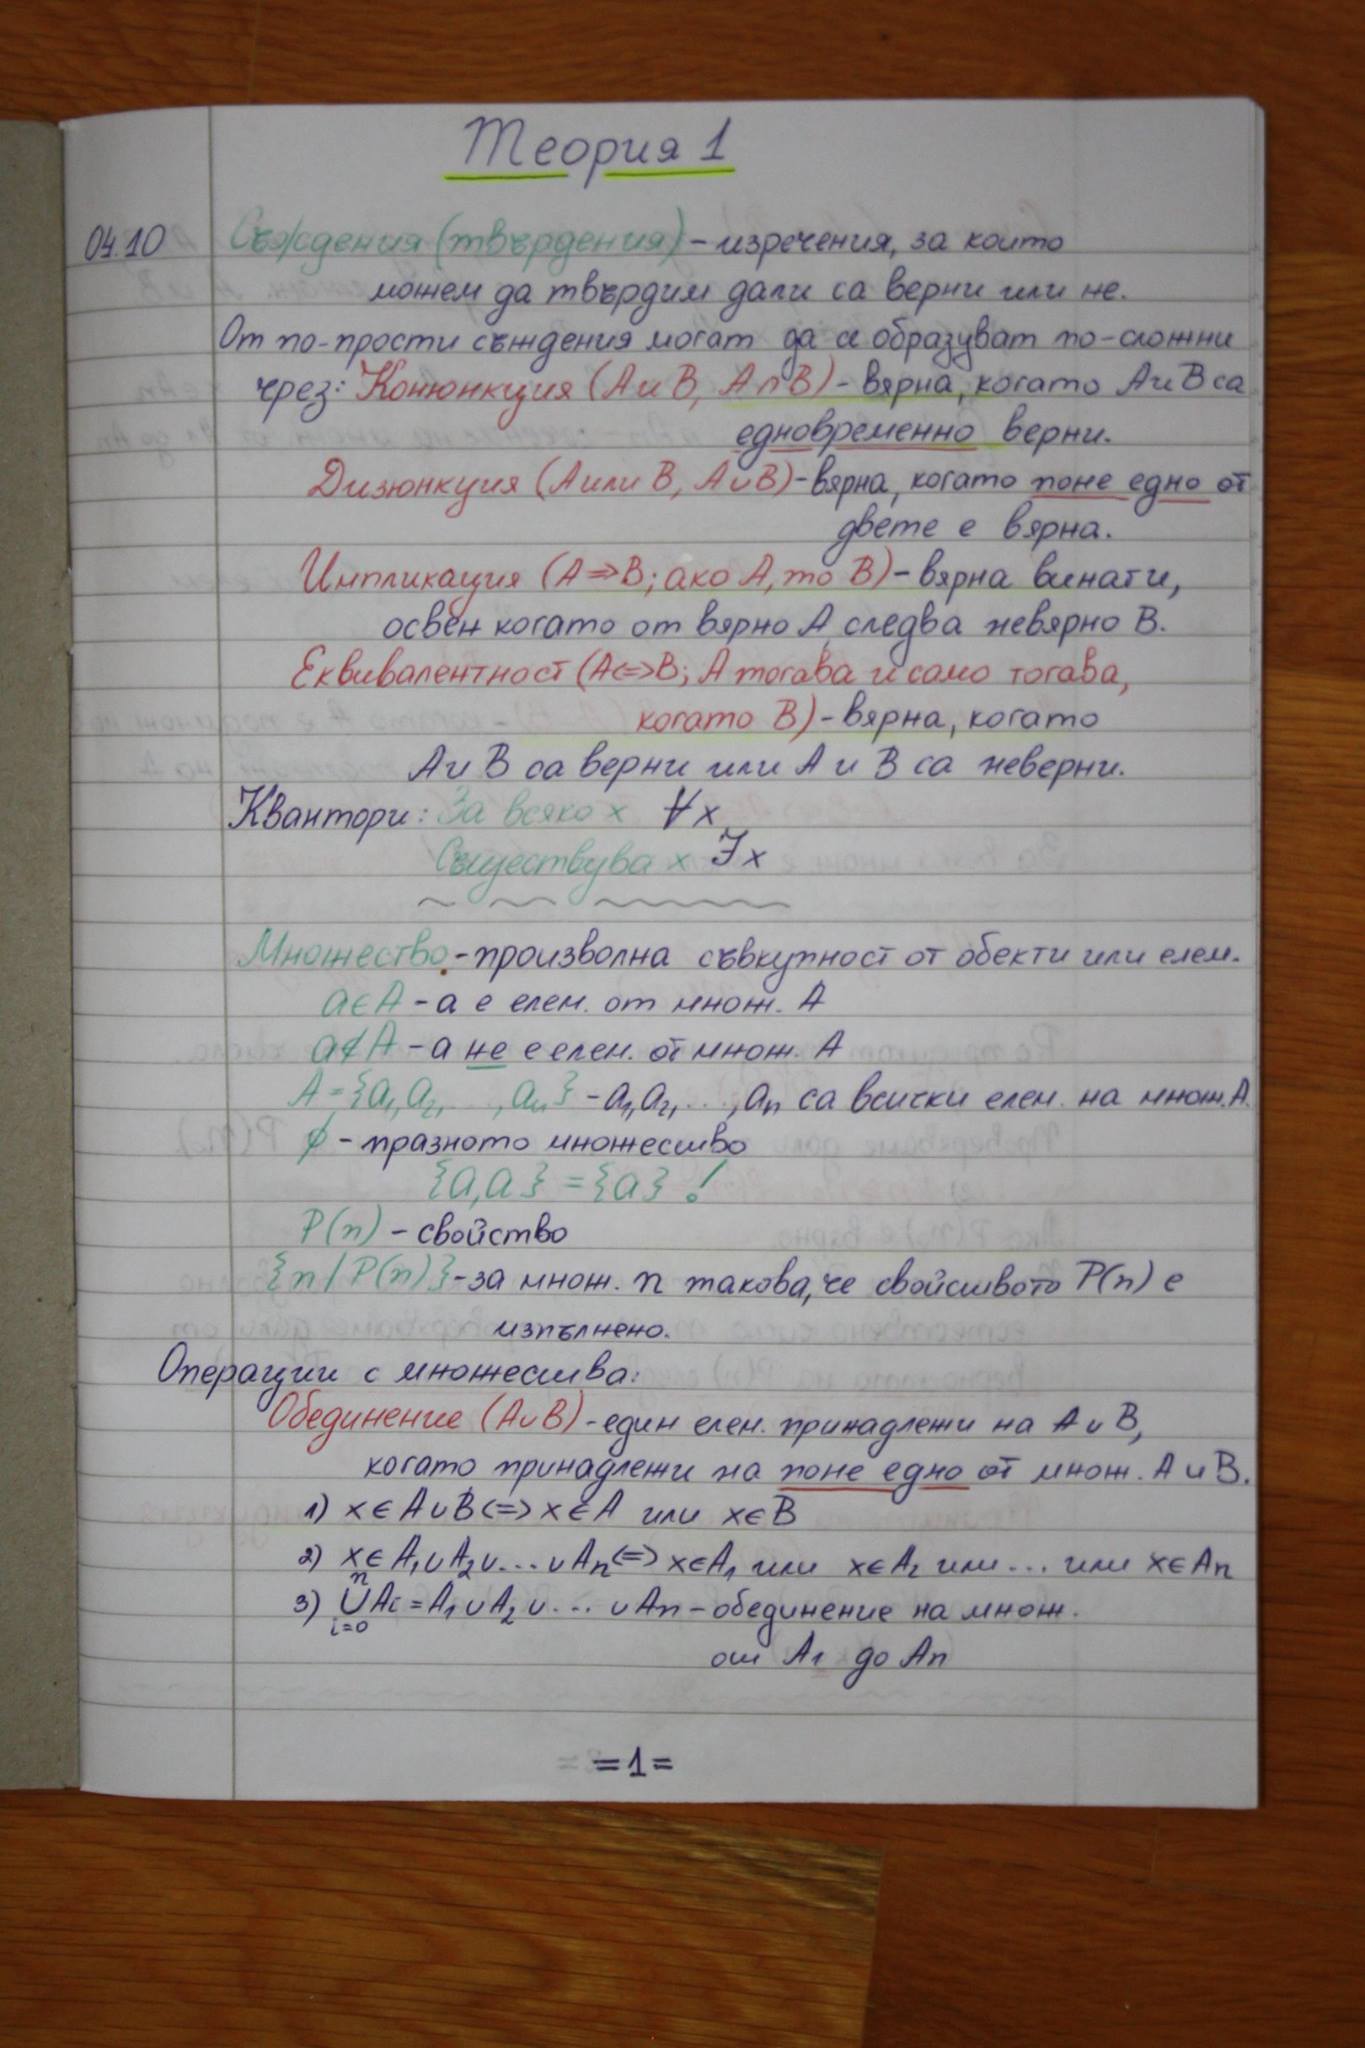 Теория 1
04.10 Съждения (твърдения) - изречения, за които
можем да твърдим дали са верни или не.
От по-прости съждения могат да се образуват по-сложни
чрез: Конюнкция (A и B, A∩B) - вярна, когато A и B са
едновременно верни.
Дизюнкция (A или B, A∪B) - вярна, когато поне едно от
двете е вярна.
Импликация (A⇒B; ако A, то B) - вярна винаги,
освен когато от вярно A следва невярно B.
Еквивалентност (A⇔B; A тогава и само тогава,
когато B) - вярна, когато
A и B са верни или A и B са неверни.
Квантори: За всяко x ∀x
Съществува x ∃x
Множество - произволна съвкупност от обекти или елем.
a∈A - a е елем. от множ. A
a∉A - a не е елем. от множ. A
A = {a₁, a₂, ..., aₙ} - a₁, a₂, ..., aₙ са всички елем. на множ. A.
∅ - празното множество
{a, a} = {a} !
P(n) - свойство
{n / P(n)} - за множ. n такова, че свойството P(n) е
изпълнено.
Операции с множества:
Обединение (A∪B) - един елем. принадлежи на A∪B,
когато принадлежи на поне едно от множ. A и B.
1) x∈A∪B <=> x∈A или x∈B
2) x∈A₁∪A₂∪...∪Aₙ <=> x∈A₁ или x∈A₂ или ... или x∈Aₙ
n
3) ∪Ai = A₁∪A₂∪...∪Aₙ - обединение на множ.
i=0
от A₁ до Aₙ
=1=